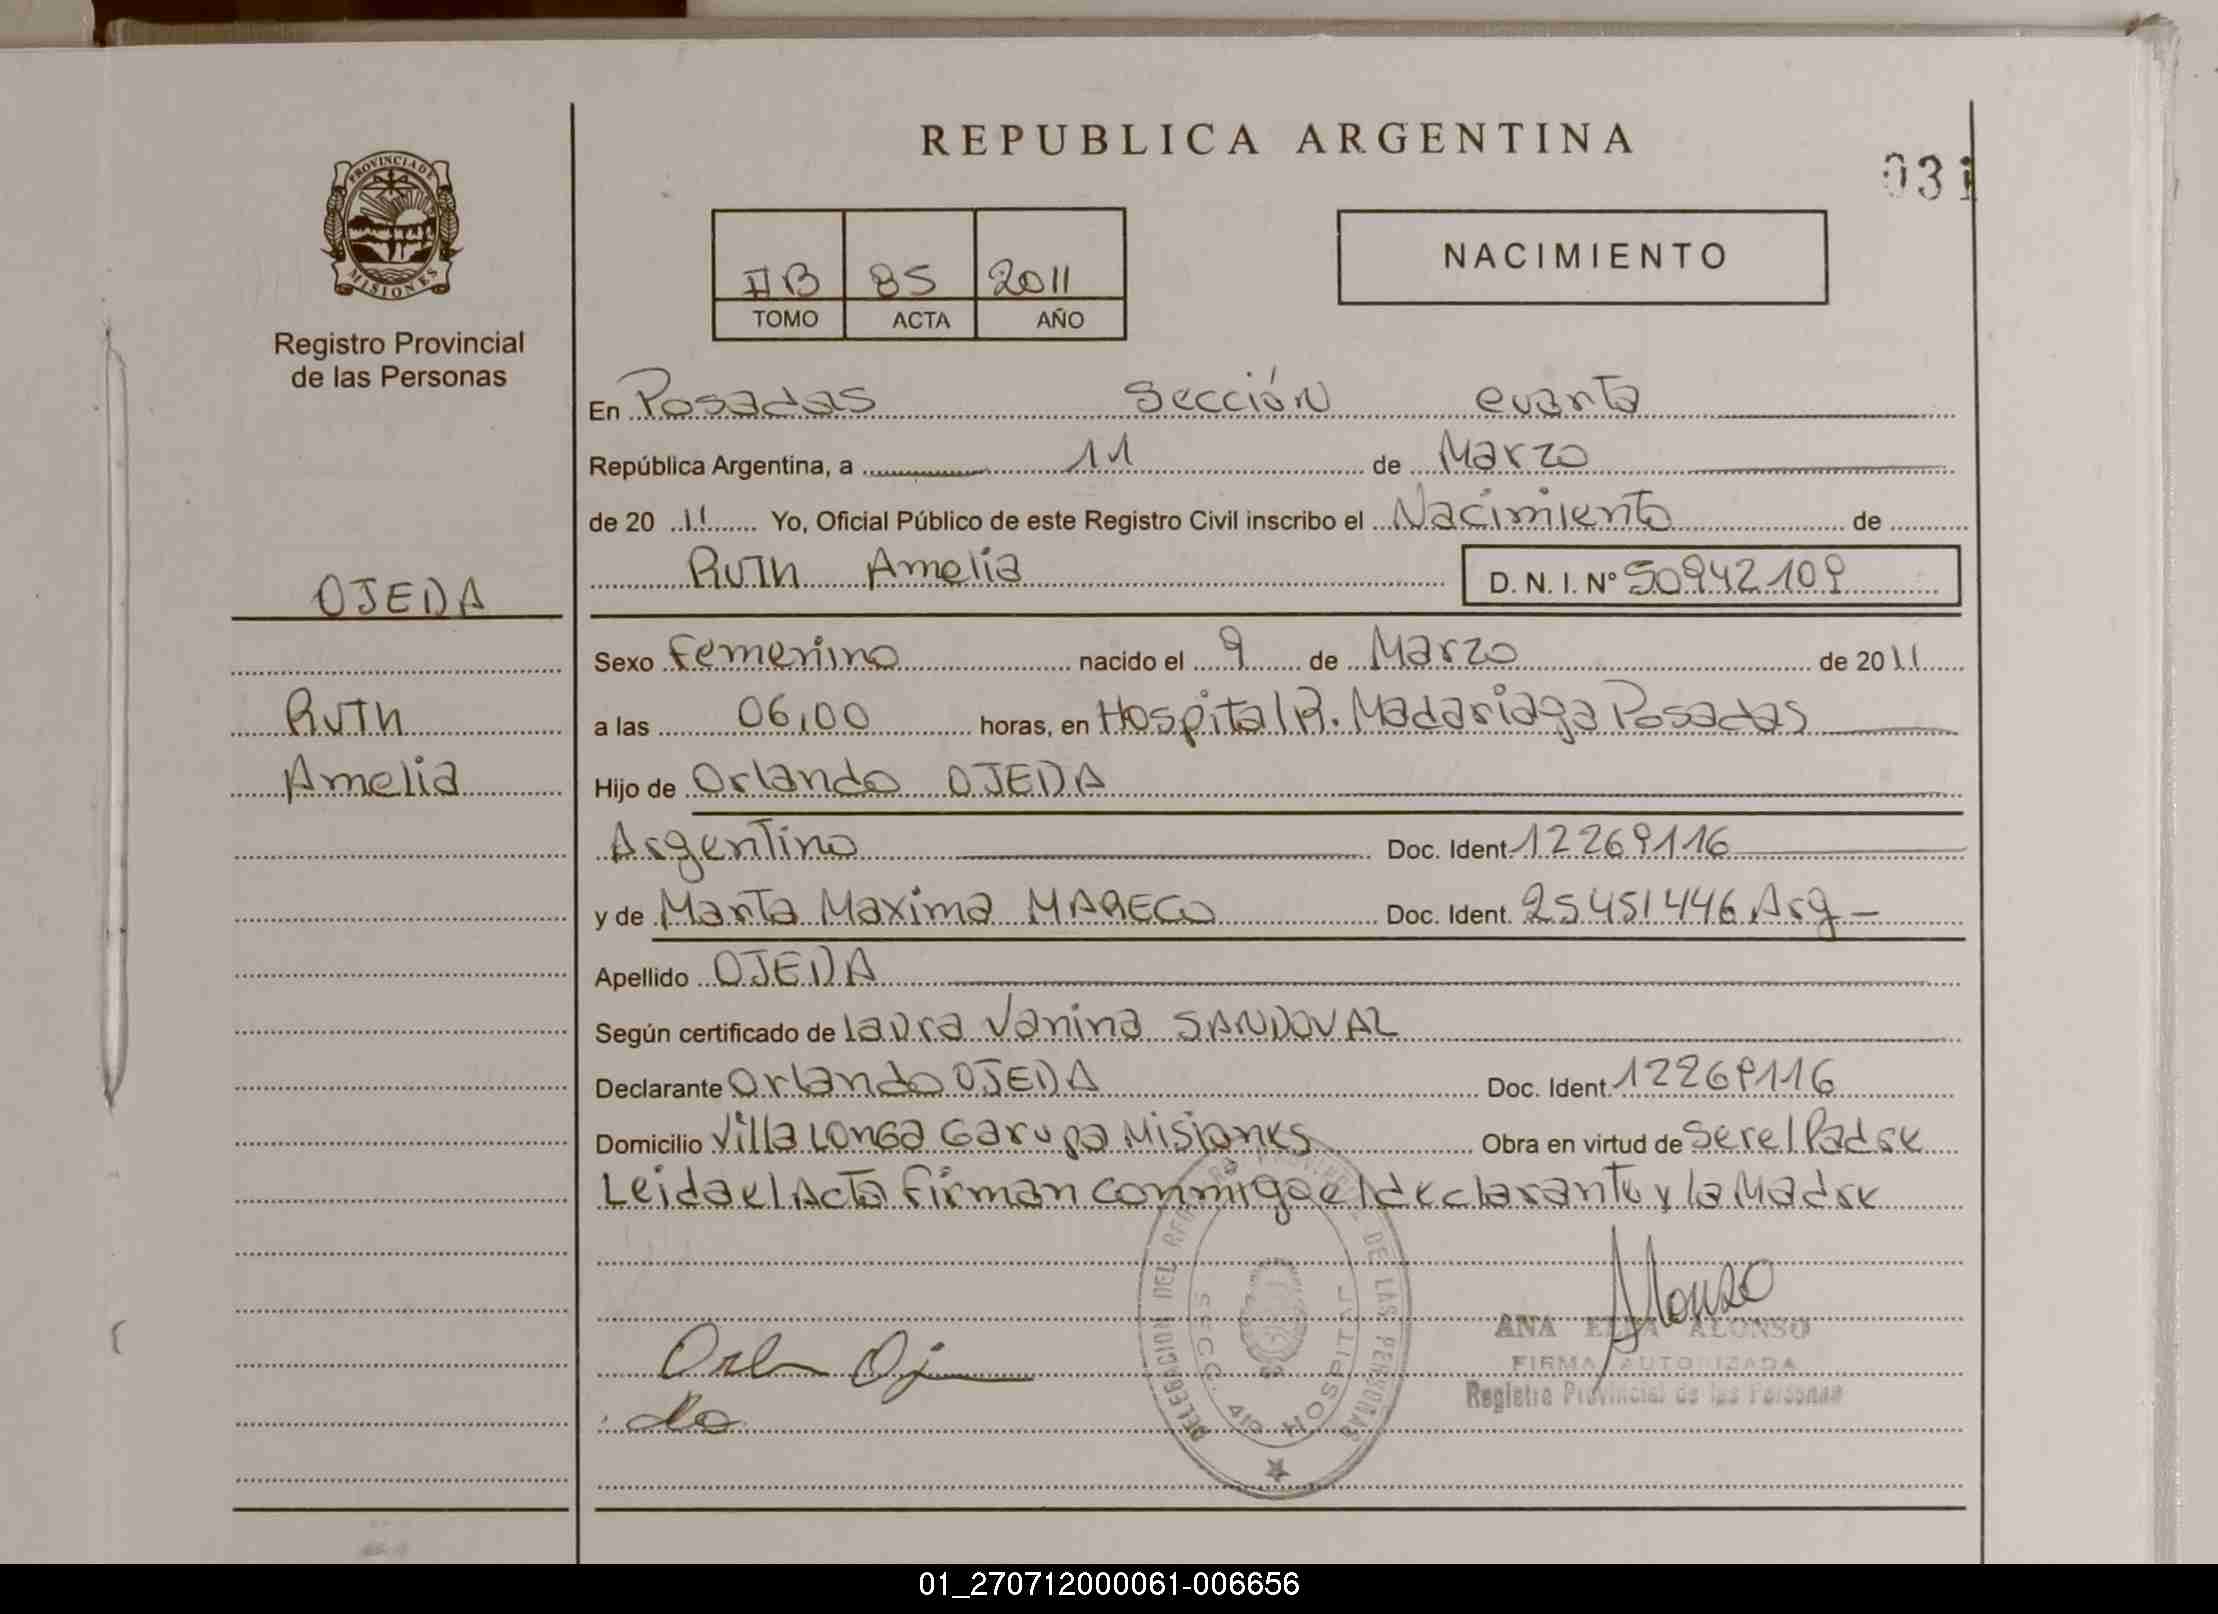 REPUBLICA ARGENTINA
031
PROVINCIA DE
MISIONES
Registro Provincial
de las Personas
IIB 85 2011
TOMO ACTA AÑO
NACIMIENTO
En Posadas Sección cuarta
República Argentina, a 11 de Marzo
de 2011 Yo, Oficial Público de este Registro Civil inscribo el Nacimiento de
Ruth Amelia D. N. I. N° 50942109
OJEDA
Ruth
Amelia
Sexo Femenino nacido el 9 de Marzo de 2011
a las 06,00 horas, en Hospital R. Madariaga Posadas
Hijo de Orlando OJEDA
Argentino Doc. Ident. 12269116
y de Marta Maxima MARECO Doc. Ident. 25451446 Arg -
Apellido OJEDA
Según certificado de Laura Vanina SANDOVAL
Declarante Orlando OJEDA Doc. Ident. 12269116
Domicilio Villa Longa Garupa Misiones Obra en virtud de ser el Padre
Leida el Acta firman conmigo el declarante y la Madre
DELEGACION DEL REGISTRO PROVINCIAL DE LAS PERSONAS
SECC. 4ta HOSPITAL
Alonso
ANA ALONSO
FIRMA AUTORIZADA
Registro Provincial de las Personas
01_270712000061-006656